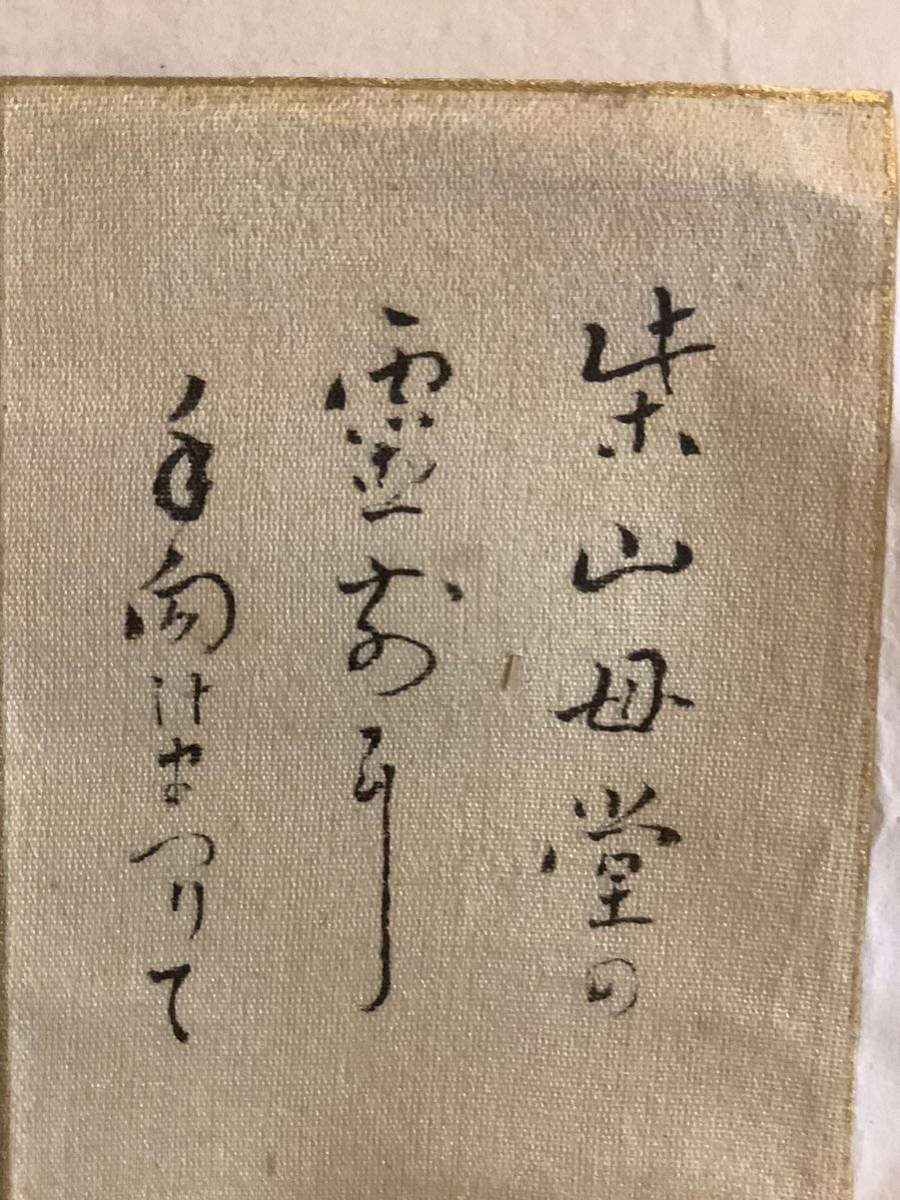 柴山母堂の
霊前耳
手向けまつりて